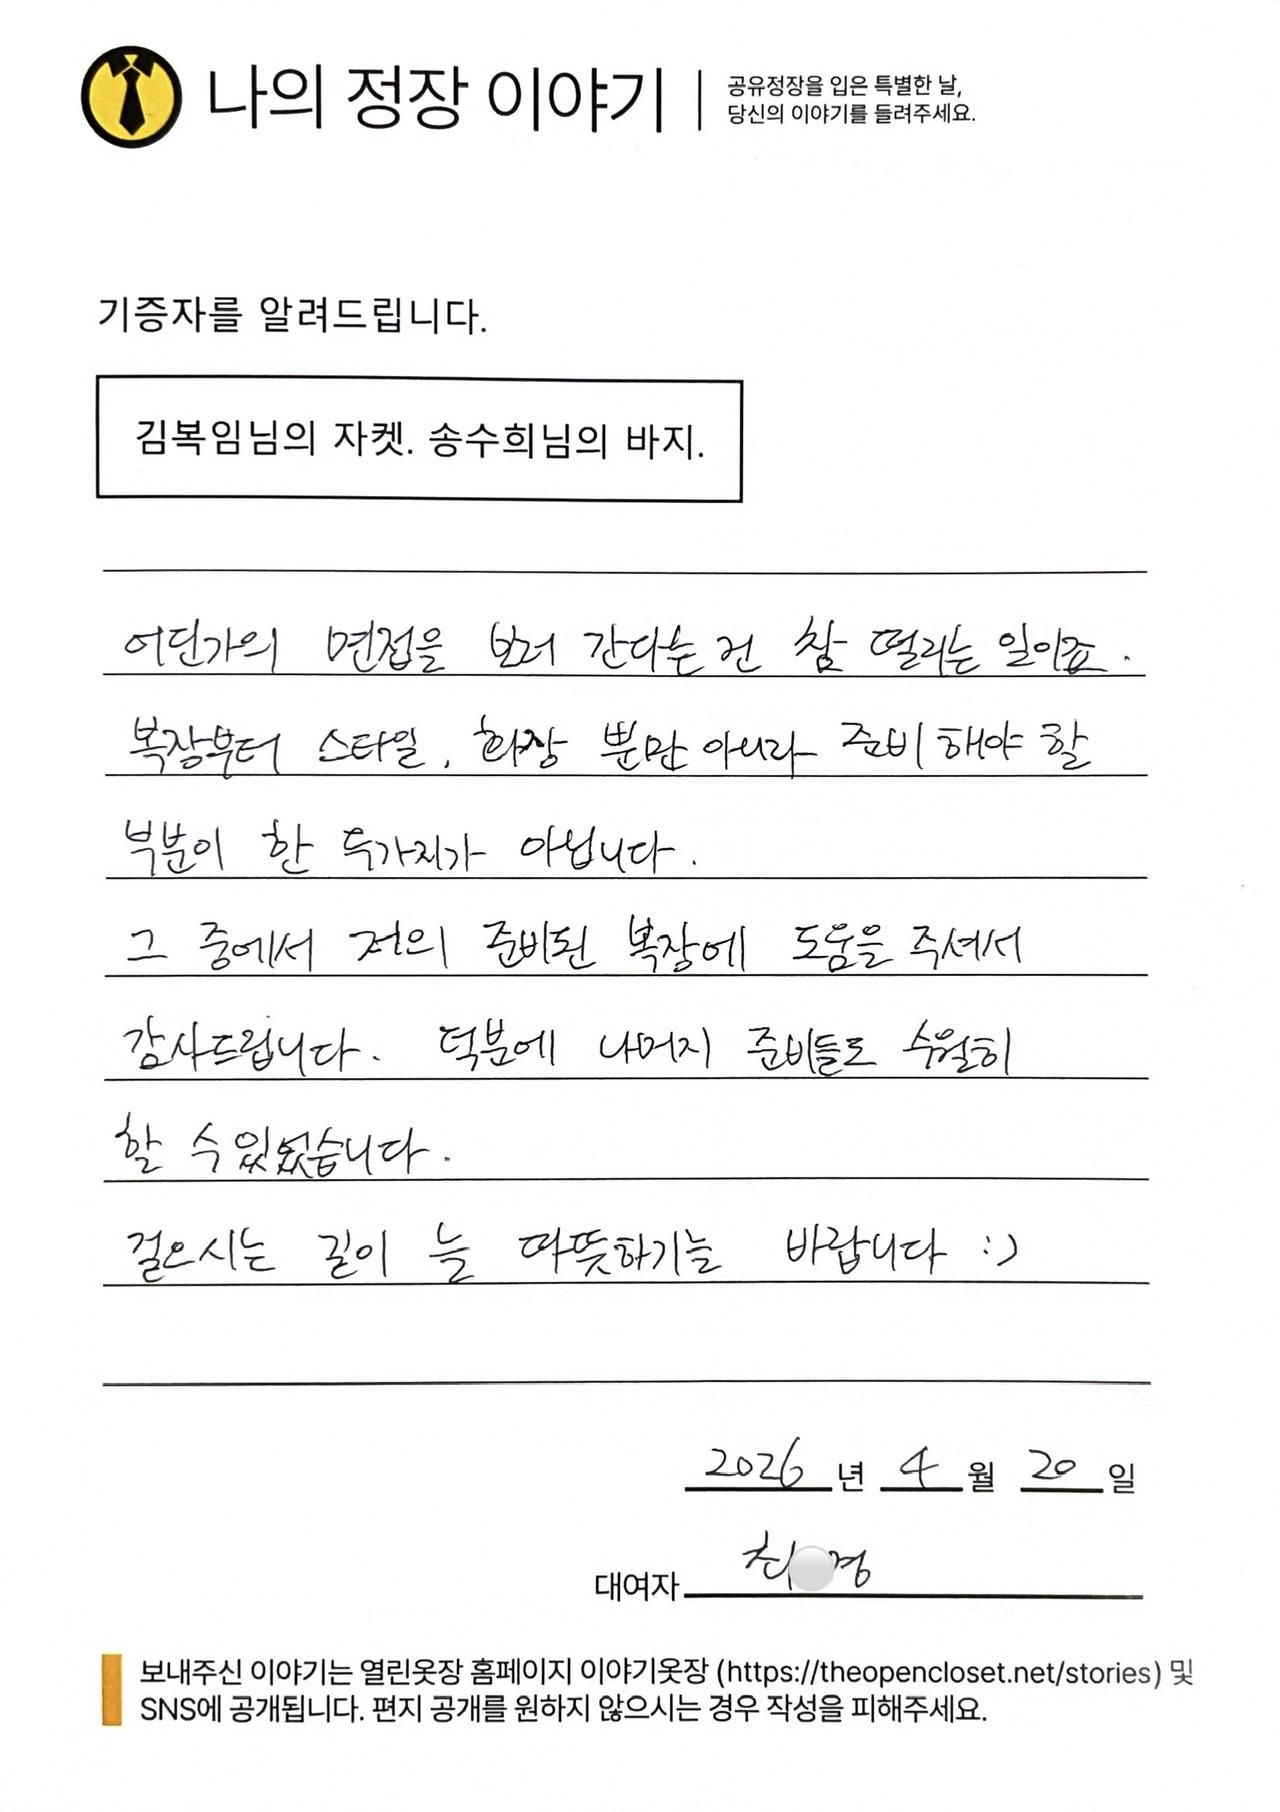 나의 정장 이야기
공유정장을 입은 특별한 날,
당신의 이야기를 들려주세요.
기증자를 알려드립니다.
김복임님의 자켓. 송수희님의 바지.
어딘가의 면접을 보러 간다는 건 참 떨리는 일이죠.
복장부터 스타일, 화장 뿐만 아니라 준비해야 할
부분이 한 두가지가 아닙니다.
그 중에서 저의 준비된 복장에 도움을 주셔서
감사드립니다. 덕분에 나머지 준비들도 수월히
할 수 있었습니다.
걸으시는 길이 늘 따뜻하기를 바랍니다 :)
2026 년 4 월 20 일
대여자 최 경
보내주신 이야기는 열린옷장 홈페이지 이야기옷장 (https://theopencloset.net/stories) 및
SNS에 공개됩니다. 편지 공개를 원하지 않으시는 경우 작성을 피해주세요.